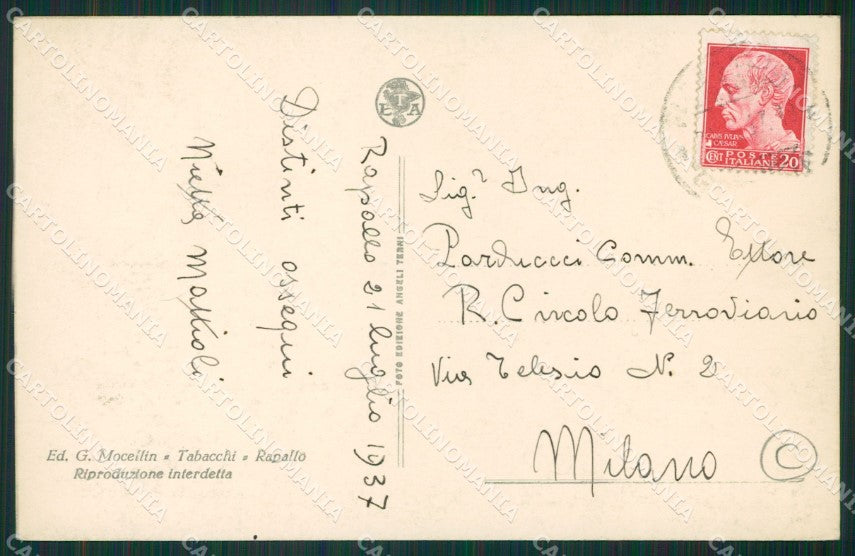 Rapallo 21 luglio 1937
Distinti ossequi
Mattioli
Sig.r Ing.
Parducci Comm. Ettore
R. Circolo Ferroviario
Via Telesio N. 2
Milano
C
CAIVS IVLIVS
CAESAR
CENT POSTE ITALIANE 20
FOTO EDIZIONE ANGELI TERNI
Ed. G. Mocellin - Tabacchi - Rapallo
Riproduzione interdetta
CARTOLINOMANIA